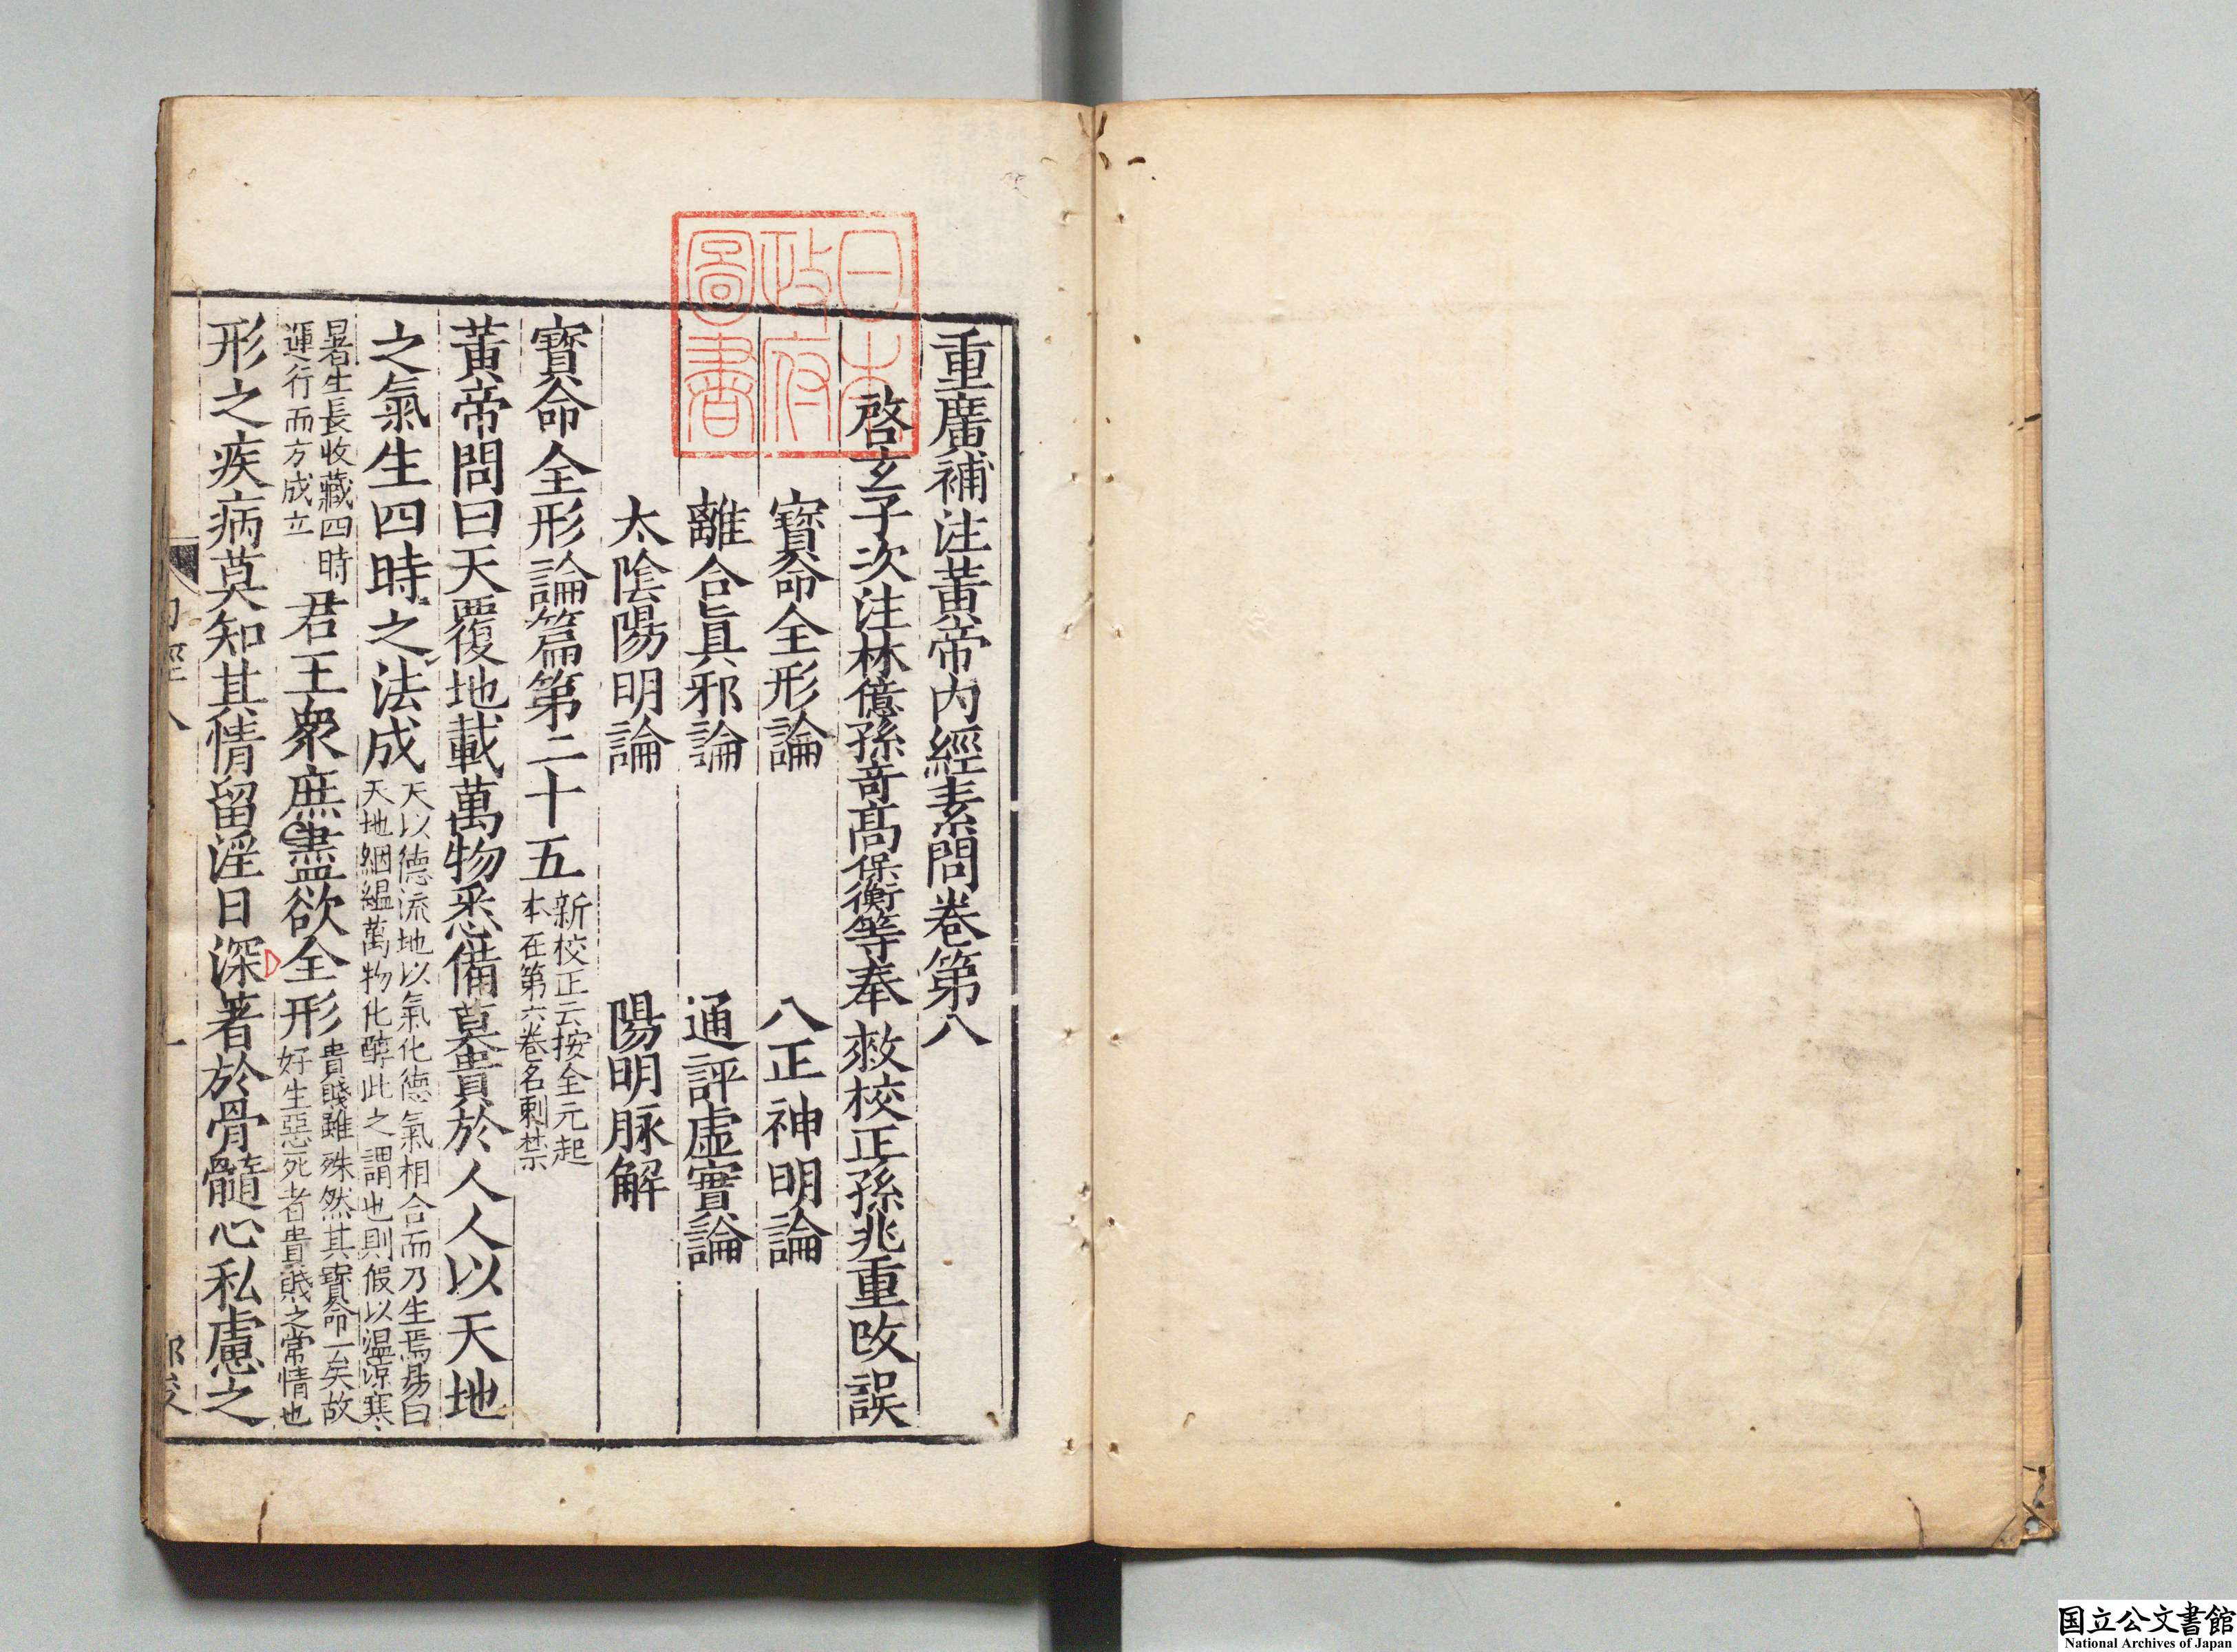 重廣補注黃帝內經素問卷第八
啓玄子次注林億孫竒髙保衡等奉敕校正孫兆重攺誤
寳命全形論
八正神明論
離合眞邪論
通評虛實論
太陰陽明論
陽明脉解
寳命全形論篇第二十五
新校正云按全元起
本在第六卷名刺禁
黃帝問曰天覆地載萬物悉備莫貴於人人以天地
之氣生四時之法成
天以德流地以氣化德氣相合而乃生焉易曰
天地絪縕萬物化醇此之謂也則假以温凉寒
暑生長收藏四時
運行而方成立
君王衆庶盡欲全形
貴賤雖殊然其寳命一矣故
好生惡死者貴賤之常情也
形之疾病莫知其情留淫日深著於骨髓心私慮之
日本
政府
圖書
国立公文書館
National Archives of Japan